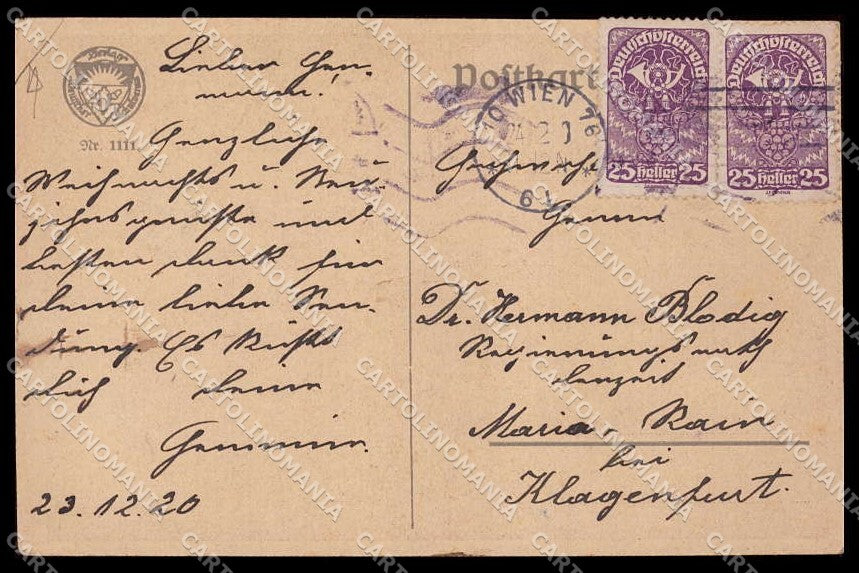 Lieber Her-
mann!
Herzliche
Weihnachts u. Neu-
jahrsgrüsse und
besten Dank für
Deine liebe Sen-
dung. Es küsst
Dich Deine
Hermine.
23.12.20
Nr. 1111.
Postkarte
WIEN 76
Deutschösterreich
25 Heller 25
Deutschösterreich
25 Heller 25
Herrn
Dr. Hermann Blodig
Regierungsrath
derzeit
Maria-Rain
bei
Klagenfurt.
CARTOLINOMANIA